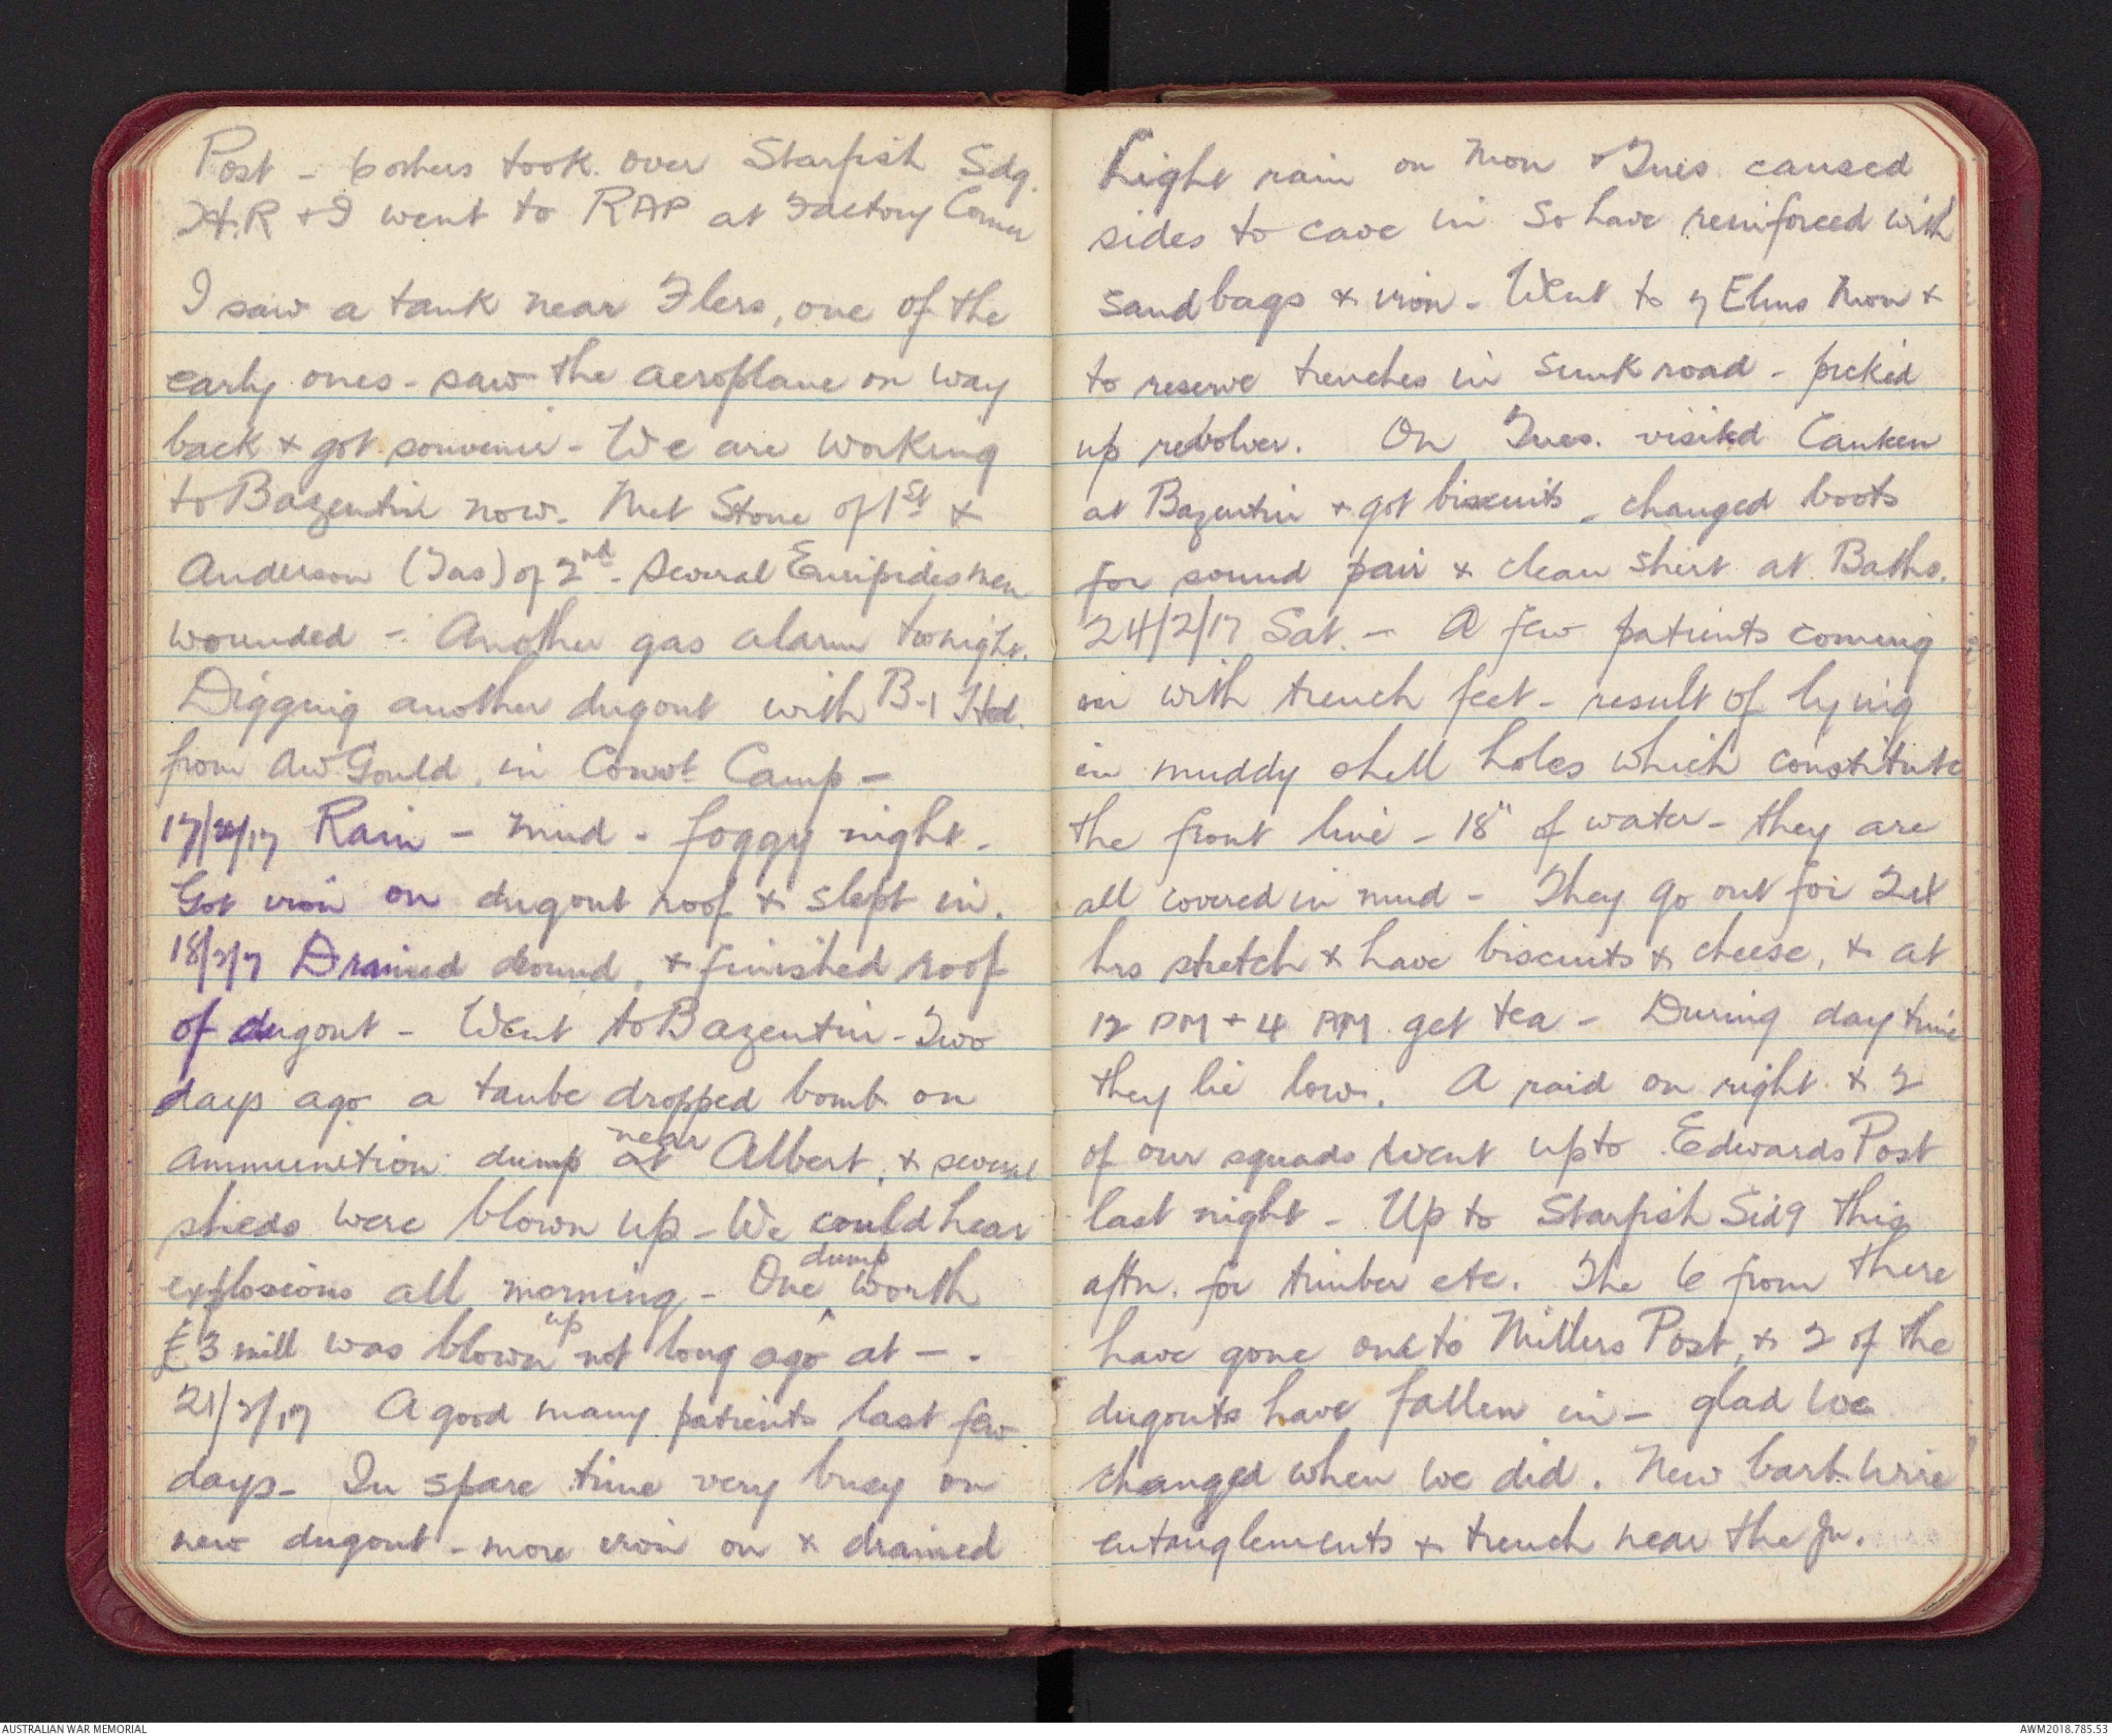 Post - 6 others took over Starfish Sdg.
H.R + I went to RAP at Factory Corner
I saw a tank near Flers, one of the
early ones - saw the aeroplane on way
back & got souvenir - We are working
to Bazentin now. Met Stone of 1st &
Anderson (Tas) of 2nd - Several Euripides men
wounded - Another gas alarm tonight.
Digging another dugout with B-1 Hd.
from AW Gould, in Camp -
17/2/17 Rain - mud - foggy night -
Got iron on dugout roof & slept in.
18/2/17 Drained around, & finished roof
of dugout - Went to Bazentin - Two
days ago a taube dropped bomb on
ammunition dump at near Albert, & several
sheds were blown up - We could hear
explosions all morning - One dump worth
£3 mill was blown up not long ago at - .
21/2/17 A good many patients last few
days - In spare time very busy on
new dugout - more iron on & drained
Light rain on Mon & Tues. caused
sides to cave in so have reinforced with
sandbags & iron - Went to 7 Elms Mon &
to reserve trenches in sunk road - picked
up revolver. On Tues. visited Canteen
at Bazentin & got biscuits - changed boots
for sound pair & clean shirt at Baths.
24/2/17 Sat. - A few patients coming
in with trench feet - result of lying
in muddy shell holes which constitute
the front line - 18" of water - they are
all covered in mud - They go out for 24
hrs stretch & have biscuits & cheese, & at
12 PM + 4 AM get tea - During day time
they lie low. A raid on right & 2
of our squads went up to Edwards Post
last night - Up to Starfish Sidg this
aftn. for timber etc. The 6 from there
have gone out to Millers Post, & 2 of the
dugouts have fallen in - glad we
changed when we did. New barb wire
entanglements & trench near the Jn.
AUSTRALIAN WAR MEMORIAL
AWM2018.785.53